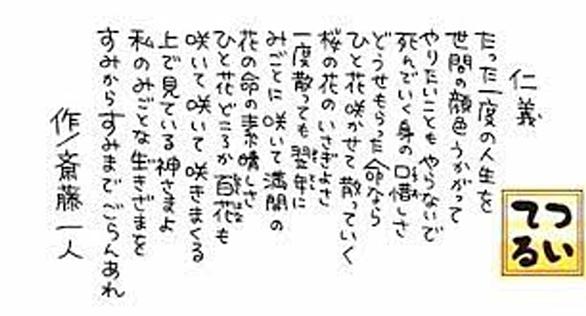 仁義
たった一度の人生を
世間の顔色うかがって
やりたいことも やらないで
死んでいく身の口惜しさ
どうせもらった命なら
ひと花咲かせて 散っていく
桜の花の いさぎよさ
一度散っても 翌年に
みごとに 咲いて 満開の
花の命の素晴しさ
ひと花どころか 百花も
咲いて 咲いて 咲きまくる
上で見ている神さまよ
私のみごとな生きざまを
すみからすみまで ごらんあれ
作/斎藤一人
つい
てる